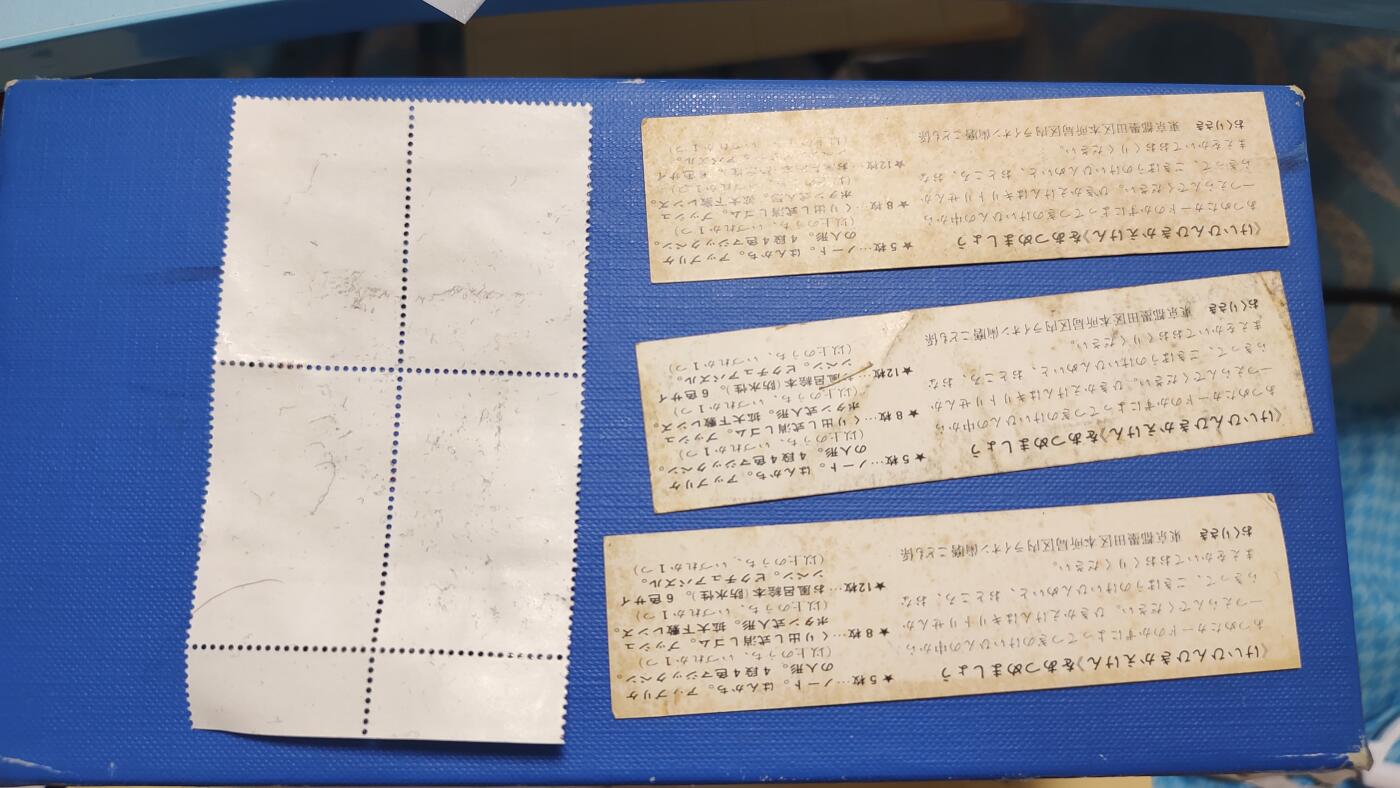 《けいひんひきかえけん》をあつめましょう
あつめたカードのかずによってつぎのけいひんの中から
一つえらんでください。ひきかえけんはキリトリせんか
らきって、ごきぼうのけいひんめいと、おところ、おな
まえをかいておおくりください。
おくりさき 東京都墨田区本所局区内ライオン歯磨こども係
★5枚…ノート。はんかち。アップリケ
の人形。4段4色マジックペン。
(以上のうち、いづれか1つ)
★8枚…くり出し式消しゴム。プッシュ
ボタン式人形。拡大下敷レンズ。
(以上のうち、いづれか1つ)
★12枚…お風呂絵本(防水性)。6色サイ
ンペン。ピクチュアパズル。
(以上のうち、いづれか1つ)
《けいひんひきかえけん》をあつめましょう
あつめたカードのかずによってつぎのけいひんの中から
一つえらんでください。ひきかえけんはキリトリせんか
らきって、ごきぼうのけいひんめいと、おところ、おな
まえをかいておおくりください。
おくりさき 東京都墨田区本所局区内ライオン歯磨こども係
★5枚…ノート。はんかち。アップリケ
の人形。4段4色マジックペン。
(以上のうち、いづれか1つ)
★8枚…くり出し式消しゴム。プッシュ
ボタン式人形。拡大下敷レンズ。
(以上のうち、いづれか1つ)
★12枚…お風呂絵本(防水性)。6色サイ
ンペン。ピクチュアパズル。
(以上のうち、いづれか1つ)
《けいひんひきかえけん》をあつめましょう
あつめたカードのかずによってつぎのけいひんの中から
一つえらんでください。ひきかえけんはキリトリせんか
らきって、ごきぼうのけいひんめいと、おところ、おな
まえをかいておおくりください。
おくりさき 東京都墨田区本所局区内ライオン歯磨こども係
★5枚…ノート。はんかち。アップリケ
の人形。4段4色マジックペン。
(以上のうち、いづれか1つ)
★8枚…くり出し式消しゴム。プッシュ
ボタン式人形。拡大下敷レンズ。
★12枚…
(以上のうち、いづれか1つ)